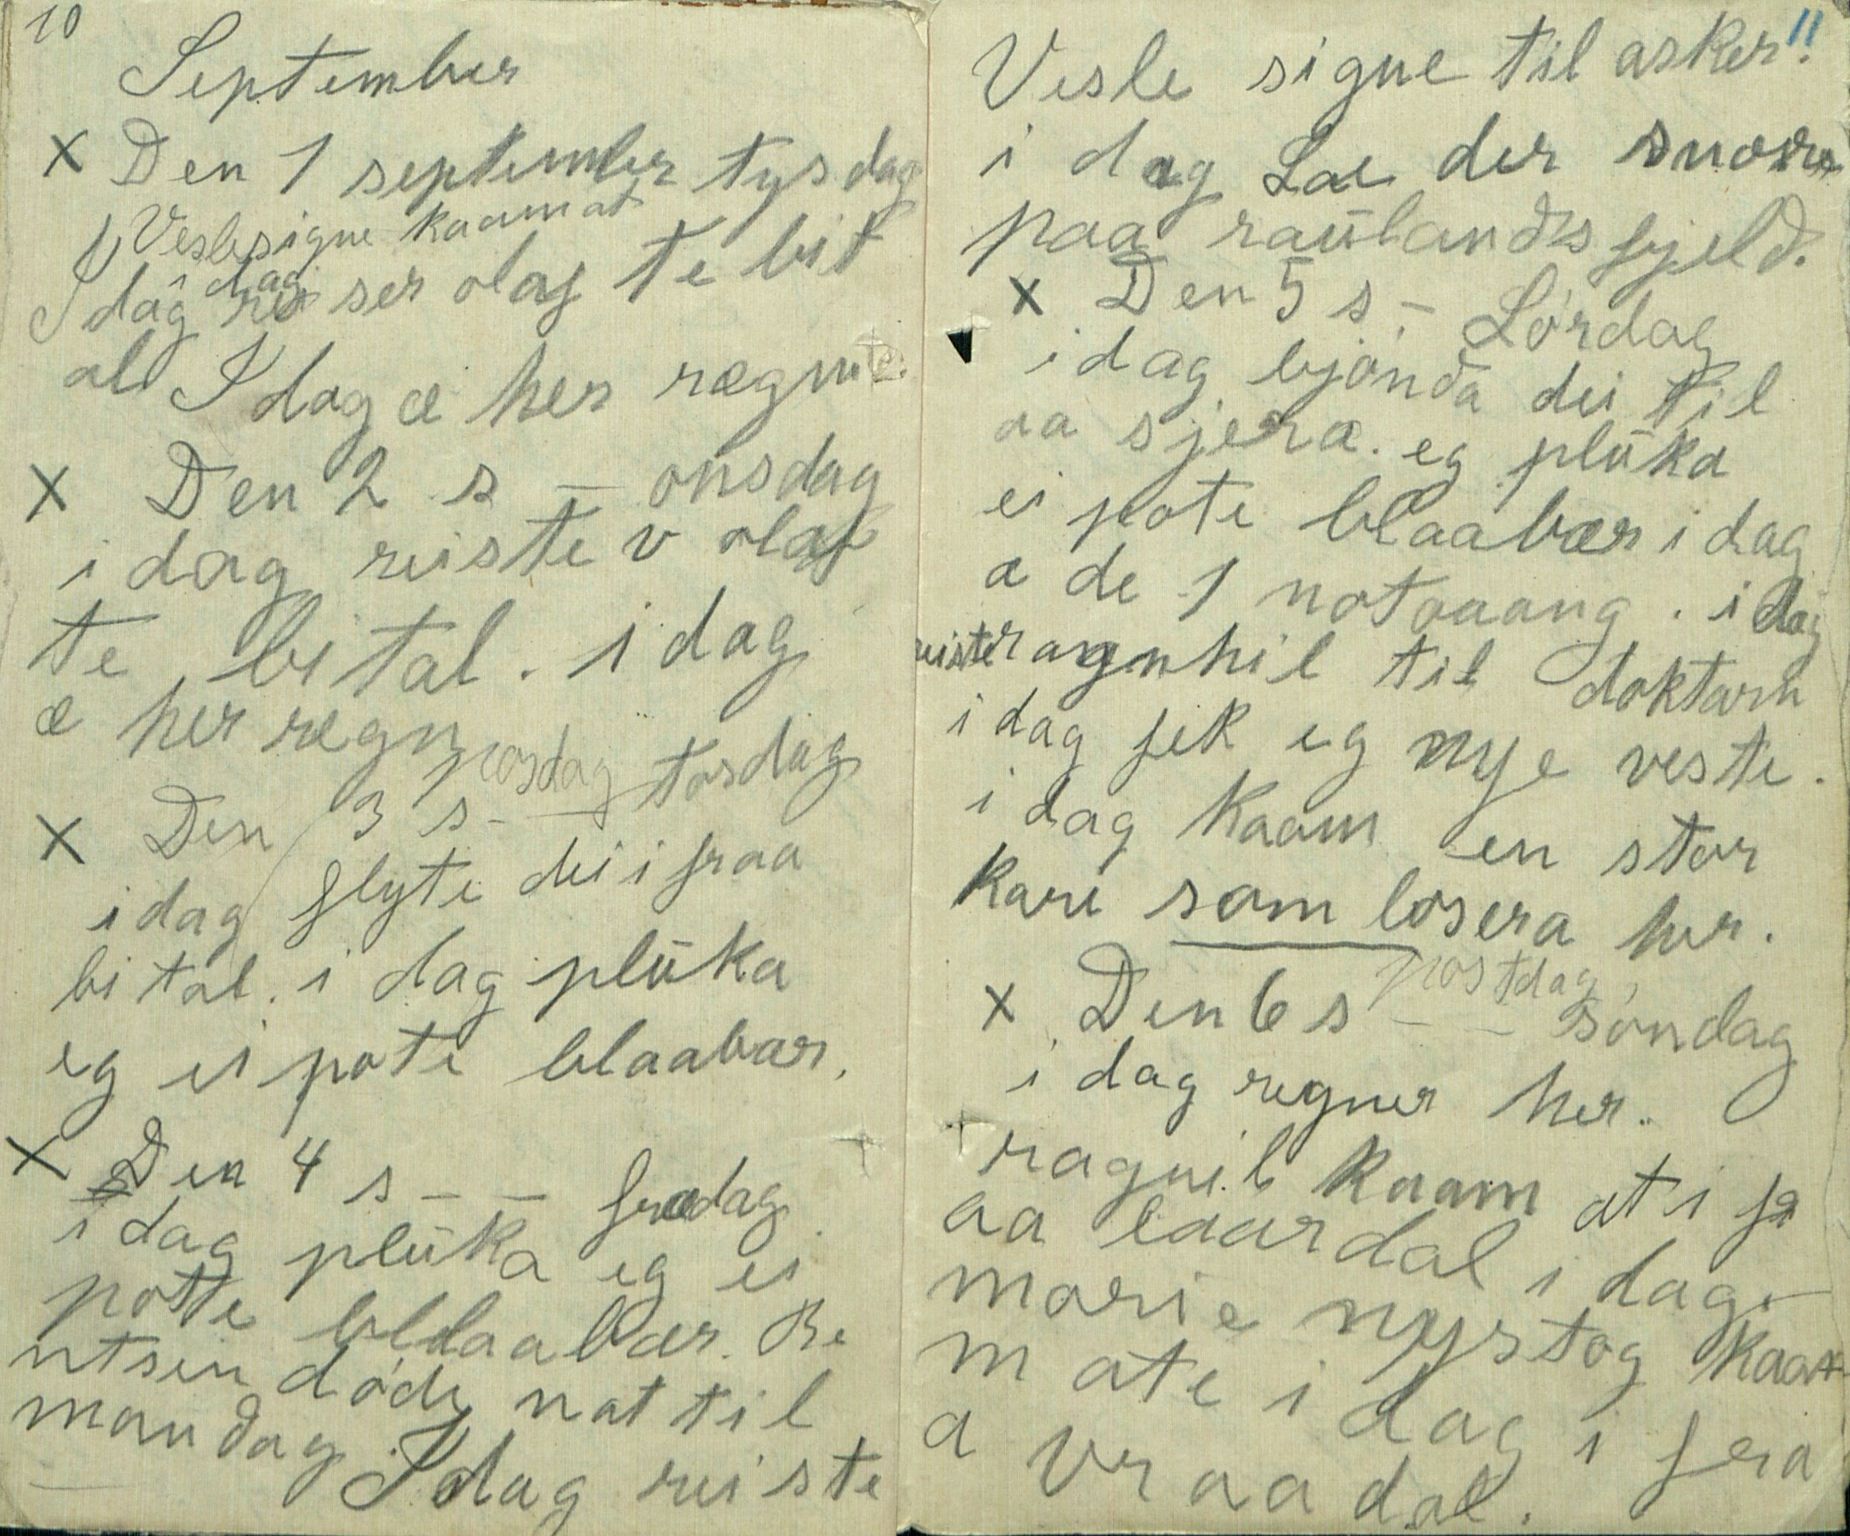 10
September
X Den 1 september tysdag
Veslesigne kaam at
i dag
I dag reiser olaf te bit
al I dag æ her rægn
X Den 2 s – onsdag
i dag reiste v olaf
te bital. i dag
æ her rægn
posdag
X Den 3 s – torsdag
i dag flyte dei i fraa
bital. i dag plūka
eg ei pote blaabær.
X Den 4 s – – fredag
i dag plūka eg ei
potte blaabær. Be
ntsen døde nat til
mandag. I dag reiste
11
Vesle signe til asker!
i dag Lae der snor
paa raūlands fjeld.
X Den 5 s – Lørdag
i dag bjønda dei til
aa sjera. eg plūka
ei pote blaabær i dag
a de 1 notaaang. i dag
reiste ragnhil til doktarn
i dag fek eg nye veste.
i dag kaam en stor
kare som losera her.
postdag
X Den 6 s – – søndag
i dag regner her.
ragnil kaam at i fr
aa laardal i dag.
marie nystog kaa
m ate i dag i fra
a vraadal.